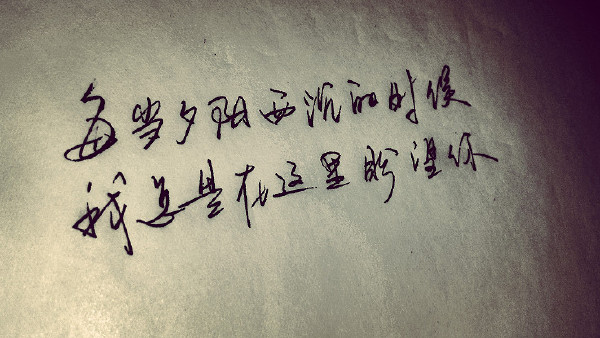 每当夕阳西沉的时候
我总是在这里盼望你